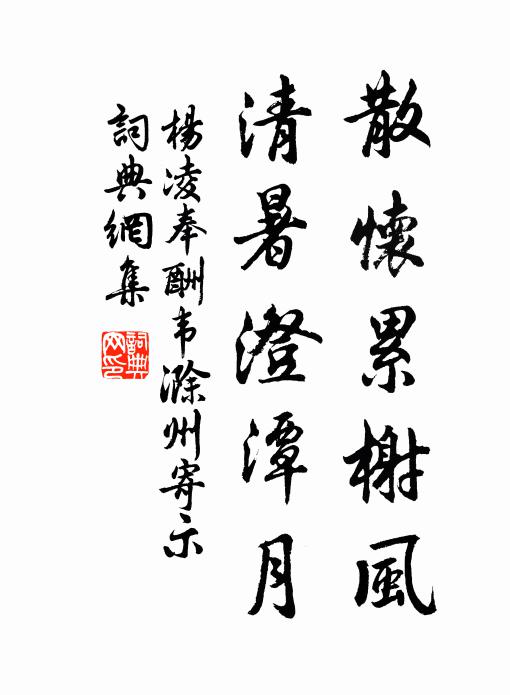 散懷累榭風
清暑澄潭月
楊凌奉酬韦滁州寄示
詞典網集
詞典
网印